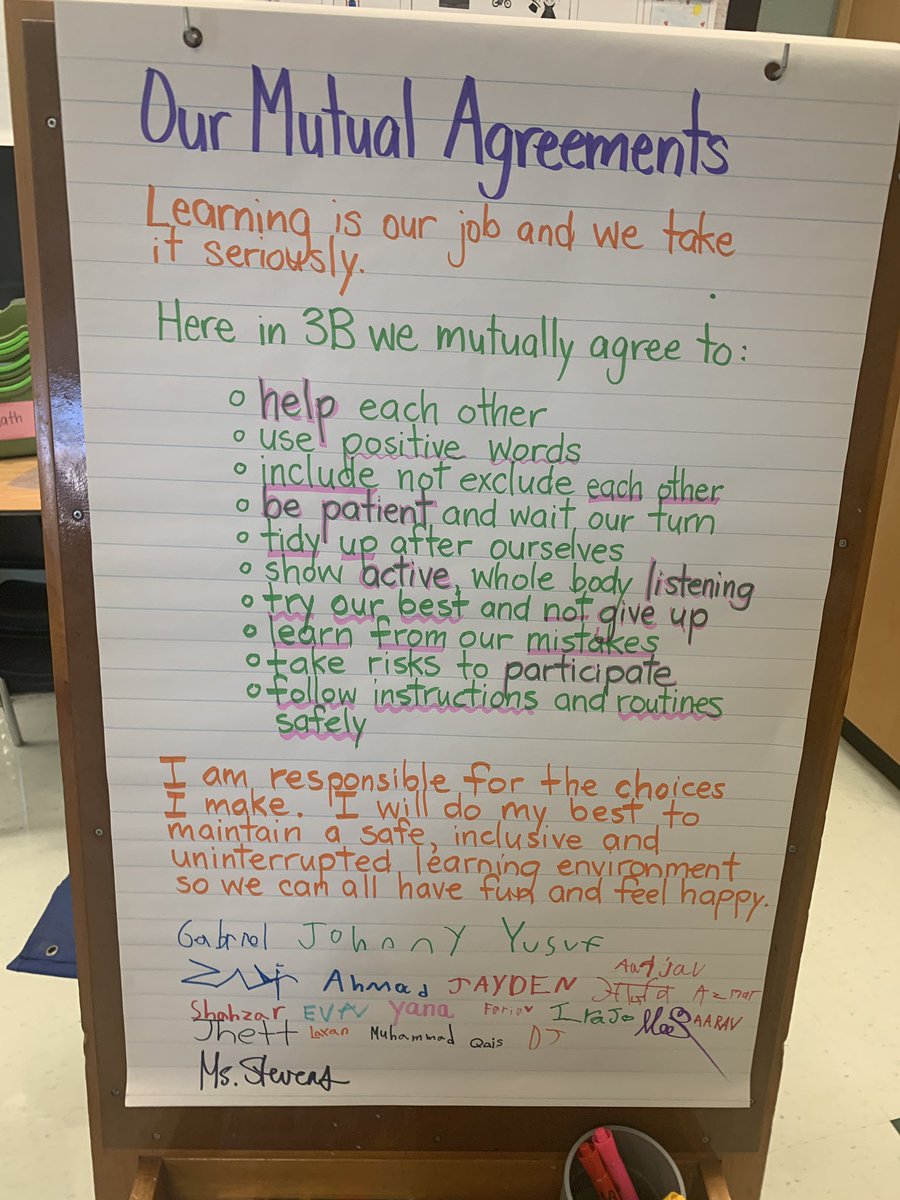 Our Mutual Agreements
Learning is our job and we take
it seriously.
Here in 3B we mutually agree to:
help each other
use positive words
include not exclude each other
be patient and wait our turn
tidy up after ourselves
show active, whole body listening
try our best and not give up
learn from our mistakes
take risks to participate
follow instructions and routines
safely
I am responsible for the choices
I make. I will do my best to
maintain a safe, inclusive and
uninterrupted learning environment
so we can all have fun and feel happy.
Gabriel Johnny Yusuf
Ahmad JAYDEN
Azmar
Shahzar EVAN yana IraJo AARAV
Jhett Muhammad Qais DJ
Ms. Stevens